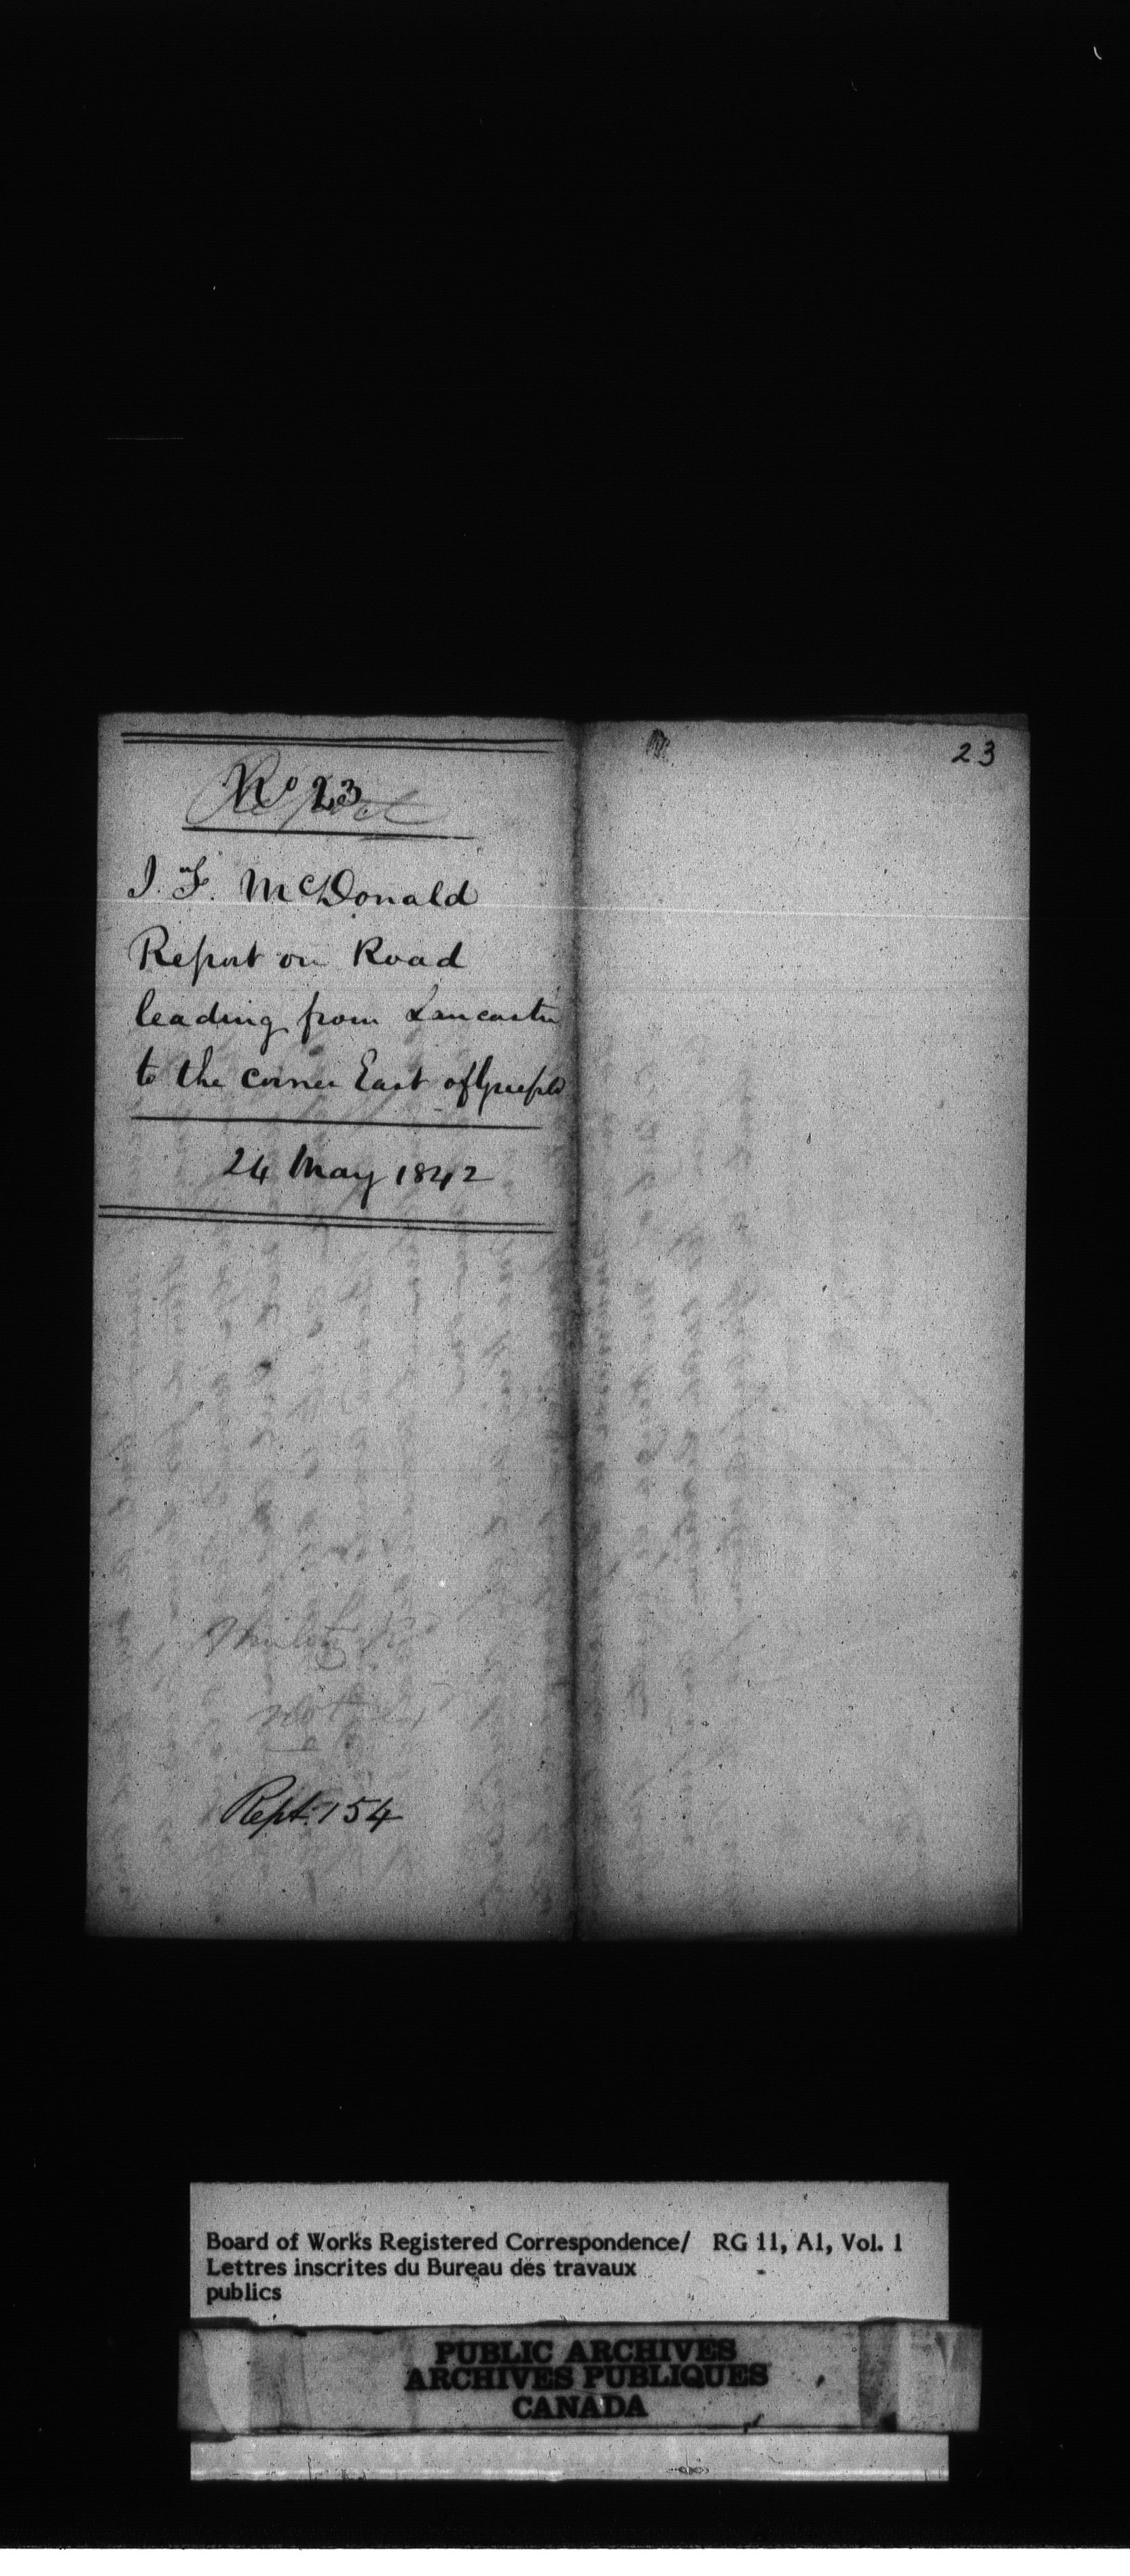 No 23
Report
J. F. McDonald
Report on Road
leading from Lancaster
to the corner East of
24 May 1842
Rept. 154
23
Board of Works Registered Correspondence/ RG 11, A1, Vol. 1
Lettres inscrites du Bureau des travaux
publics
PUBLIC ARCHIVES
ARCHIVES PUBLIQUES
CANADA